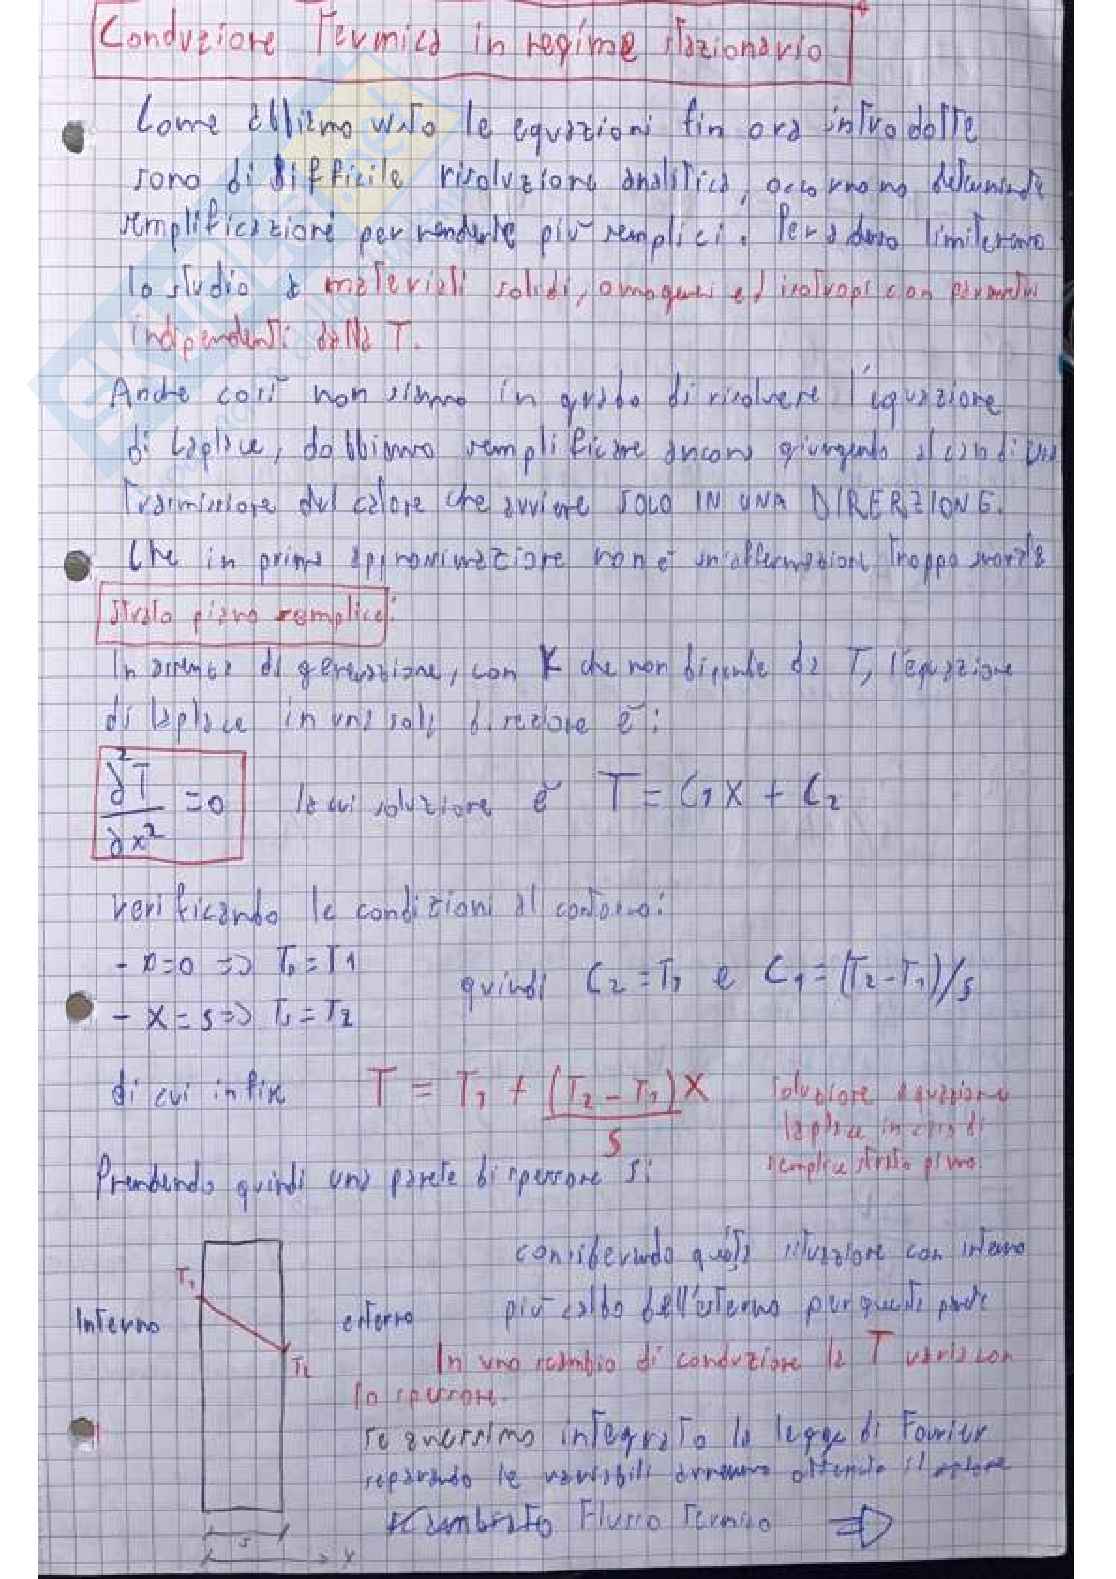 Conduzione Termica in regime stazionario
Come abbiamo visto le equazioni fin ora introdotte
sono di difficile risoluzione analitica, occorrono determinate
semplificazioni per renderle più semplici. Per adesso limiteremo
lo studio a materiali solidi, omogenei ed isotropi con parametri
indipendenti dalla T.
Anche così non siamo in grado di risolvere l'equazione
di Laplace, dobbiamo semplificare ancora giungendo al caso di una
trasmissione del calore che avviene SOLO IN UNA DIRERZIONE.
Che in prima approssimazione non è un'affermazione troppo
Strato piano semplice:
In assenza di generazione, con K che non dipende da T, l'equazione
di Laplace in una sola direzione è:
∂²T/∂x² = 0 la cui soluzione è T = C1x + C2
verificando le condizioni al contorno:
- x=0 => T = T1
- x = s => T = T2
quindi C2 = T1 e C1 = (T2 - T1)/s
di cui infine T = T1 + (T2 - T1)x/s
soluzione equazione
laplace in caso di
semplice strato piano.
Prendendo quindi una parete di spessore s:
considerando questa situazione con interno
più caldo dell'esterno per questa parete
T1
Interno
esterno
T2
In uno scambio di conduzione la T varia con
lo spessore.
se avessimo integrato la legge di Fourier
separando le variabili avremmo ottenuto il calore
scambiato Flusso Termico
s
x